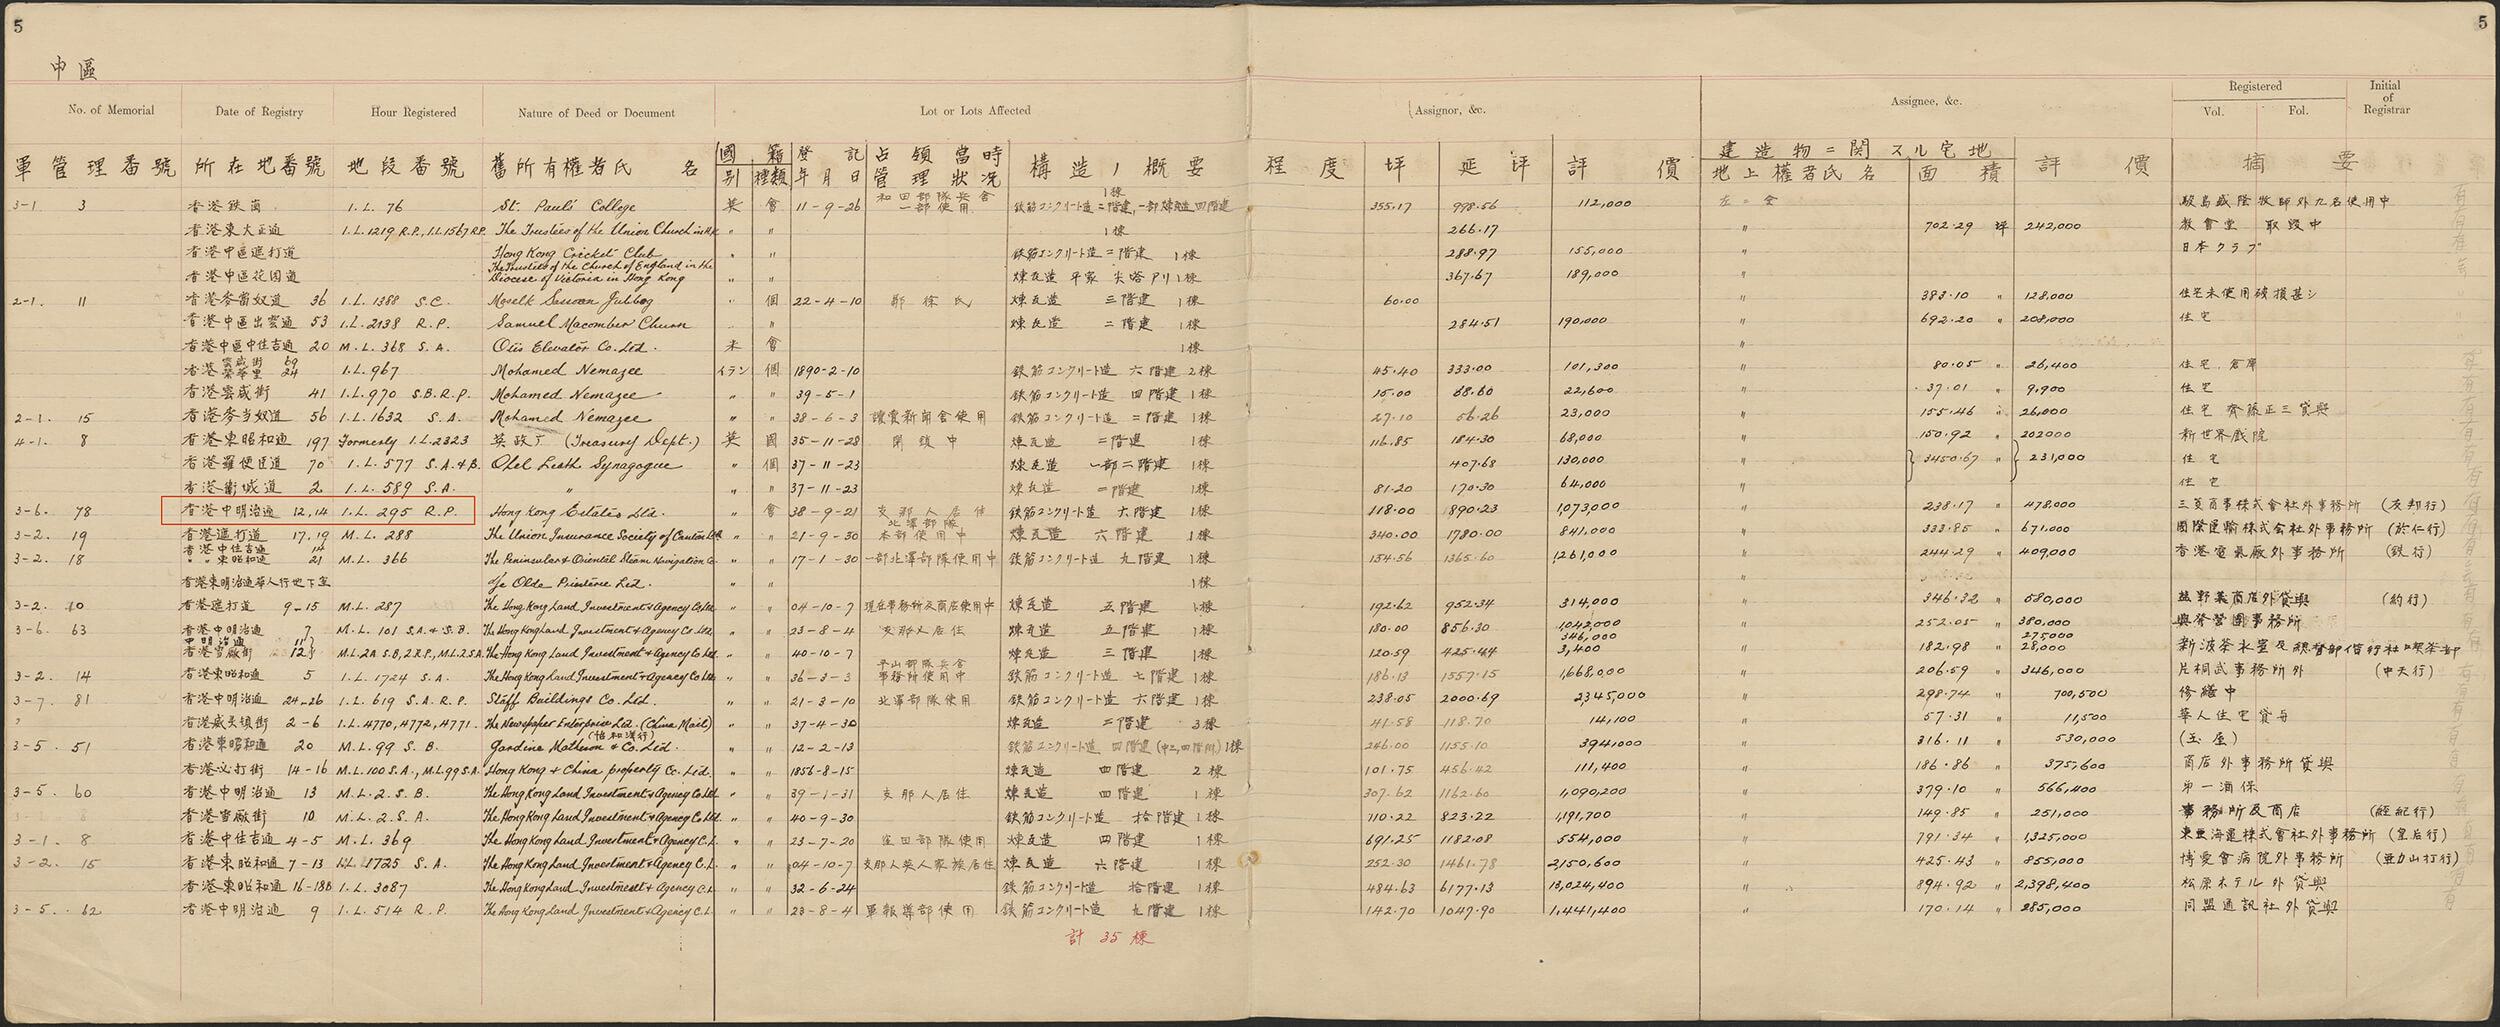 5
5
中區
No. of Memorial Date of Registry Hour Registered Nature of Deed or Document Lot or Lots Affected Assignor, &c. Assignee, &c. Registered Vol. Fol. Initial of Registrar
軍管理番號 所在地番號 地段番號 舊所有權者氏名 國別 籍種類 登記年月日 占領當時管理狀況 構造ノ概要 程度 坪 延坪 評價 建造物ニ関スル宅地 地上權者氏名 面積 評價 摘要
3-1 3 香港鉄崗 I.L. 76 St. Paul's College 英 會 11-9-26 和田部隊兵舎一部使用 鉄筋コンクリート造二階建,一部煉瓦造四階建 1棟 355.17 998.56 112,000 左ニ仝
香港東大正通 I.L.1219 R.P., I.L.1567 R.P. The Trustees of the Union Church in H.K. 〃 〃 1棟 266.17 〃 702.29 坪 242,000 教會堂 取毀中
香港中區遮打道 Hong Kong Cricket Club 〃 〃 鉄筋コンクリート造二階建 1棟 288.97 155,000 日本クラブ
香港中區花園道 The Trustees of the Church of England in the Diocese of Victoria in Hong Kong 〃 〃 煉瓦造 平家 尖塔アリ 1棟 367.67 189,000
2-1. 11 香港麥當奴道 36 I.L. 1388 S.C. 〃 個 22-4-10 鄭徐氏 煉瓦造 三階建 1棟 60.00 〃 383.10 〃 128,000 住宅未使用破損甚シ
香港中區出雲通 53 I.L. 2138 R.P. Samuel Macomber Churn 〃 煉瓦造 二階建 1棟 284.51 190,000 〃 692.20 〃 208,000 住宅
香港中區中住吉通 20 M.L. 368 S.A. Otis Elevator Co. Ltd. 米 會 1棟 〃
香港雲咸街 69 24 I.L. 967 Mohamed Nemazee イラン 個 1890-2-10 鉄筋コンクリート造 六階建 2棟 45.40 333.00 101,300 〃 80.05 〃 26,400 住宅.倉庫
香港雲咸街 41 I.L. 970 S.B.R.P. Mohamed Nemazee 〃 〃 39-5-1 鉄筋コンクリート造 四階建 1棟 15.00 68.60 22,600 〃 37.01 〃 9,900 住宅
2-1. 15 香港麥当奴道 56 I.L. 1632 S.A. Mohamed Nemazee 〃 〃 38-6-3 讀賣新聞舎使用 鉄筋コンクリート造 二階建 1棟 27.10 56.26 23,000 〃 155.46 〃 26,000 住宅 齊藤正三貸與
4-1. 8 香港東昭和通 197 Formerly I.L. 2323 英政庁 (Treasury Dept.) 英 國 35-11-28 閉鎖中 煉瓦造 二階建 1棟 116.85 184.30 68,000 〃 150.92 〃 202000 新世界戲院
香港羅便臣道 70 I.L. 577 S.A.&B. Ohel Leah Synagogue 〃 個 37-11-23 煉瓦造 一部二階建 1棟 407.68 130,000 〃 3450.67 〃 231,000 住宅
香港衞城道 2 I.L. 589 S.A. 〃 〃 〃 37-11-23 煉瓦造 二階建 1棟 81.20 170.30 64,000 〃 住宅
3-6. 78 香港中明治通 12,14 I.L. 295 R.P. Hong Kong Estates Ltd. 〃 會 38-9-21 支那人居住 鉄筋コンクリート造 六階建 1棟 118.00 890.23 1,073,000 〃 238.17 〃 478,000 三菱商事株式會社外事務所 (友邦行)
3-2. 19 香港遮打道 17,19 M.L. 288 The Union Insurance Society of Canton Ltd. 〃 〃 21-9-30 北澤部隊本部使用中 煉瓦造 六階建 1棟 340.00 1780.00 841,000 〃 333.85 〃 671,000 國際運輸株式会社外事務所 (於仁行)
3-2. 18 香港中住吉通 14 〃 〃 東昭和通 21 M.L. 366 The Peninsular & Oriental Steam Navigation Co. 〃 〃 17-1-30 一部北澤部隊使用中 鉄筋コンクリート造 九階建 1棟 154.56 1365.60 1,261,000 〃 244.29 〃 409,000 香港電氣廠外事務所 (鉄行)
香港東明治通華人行地下室 Ye Olde Printerie Ltd. 〃 〃 1棟 〃
3-2. 10 香港遮打道 9-15 M.L. 287 The Hong Kong Land Investment & Agency Co. Ltd. 〃 〃 04-10-7 現在事務所及商店使用中 煉瓦造 五階建 1棟 192.62 952.34 314,000 〃 346.32 〃 580,000 (約行)
3-6. 63 香港中明治通 7 M.L. 101 S.A. & S.B. The Hong Kong Land Investment & Agency Co. Ltd. 〃 〃 23-8-4 支那人居住 煉瓦造 五階建 1棟 180.00 856.30 1,042,000 〃 252.05 〃 380,000 興発營團事務所
中明治通 11 香港雪廠街 12 M.L.2A S.B, 2 R.P., M.L.2 S.A. The Hong Kong Land Investment & Agency Co. Ltd. 〃 〃 40-10-7 煉瓦造 三階建 1棟 120.59 425.44 346,000 3,400 〃 182.98 〃 275000 28,000
3-2. 14 香港東昭和通 5 I.L. 1724 S.A. The Hong Kong Land Investment & Agency Co. Ltd. 〃 〃 36-3-3 平山部隊兵舎事務所使用中 鉄筋コンクリート造 七階建 1棟 186.13 1557.15 1,668,000 〃 206.59 〃 346,000 片桐武事務所外 (中天行)
3-7. 81 香港中明治通 24-26 I.L. 619 S.A. R.P. Staff Buildings Co. Ltd. 〃 〃 21-3-10 北澤部隊使用 鉄筋コンクリート造 六階建 1棟 238.05 2000.69 2,345,000 〃 298.74 〃 700,500 修繕中
? 香港威灵頓街 2-6 I.L. 4770, 4772, 4771. The Newspaper Enterprise Ltd. (China Mail) 〃 〃 37-4-30 煉瓦造 二階建 3棟 41.58 118.70 14,100 〃 57.31 〃 11,500 華人住宅貸与
3-5. 51 香港東昭和通 20 M.L. 99 S.B. Jardine Matheson & Co. Ltd. (怡和洋行) 〃 〃 12-2-13 鉄筋コンクリート造 四階建 1棟 246.00 1155.10 394,000 〃 316.11 〃 530,000 (玉屋)
香港必打街 14-16 M.L. 100 S.A., M.L. 99 S.A. Hong Kong & China property Co. Ltd. 〃 〃 1856-8-15 煉瓦造 四階建 2棟 101.75 456.42 111,400 〃 186.86 〃 375,600 商店外事務所貸與
3-5. 60 香港中明治通 13 M.L. 2. S.B. The Hong Kong Land Investment & Agency Co. Ltd. 〃 〃 39-1-31 支那人居住 煉瓦造 四階建 1棟 307.62 1162.60 1,090,200 〃 379.10 〃 566,400 第一酒保
香港雪廠街 10 M.L. 2. S.A. The Hong Kong Land Investment & Agency Co. Ltd. 〃 〃 40-9-30 鉄筋コンクリート造 拾階建 1棟 110.22 823.22 1,191,700 〃 149.85 〃 251,000 事務所及商店 (經紀行)
3-1. 8 香港中住吉通 4-5 M.L. 369 The Hong Kong Land Investment & Agency C.L. 〃 〃 23-7-20 窪田部隊使用 煉瓦造 四階建 1棟 691.25 1182.08 554,000 〃 791.34 〃 1,325,000 東亜海運株式會社外事務所 (皇后行)
3-2. 15 香港東昭和通 7-13 I.L. 1725 S.A. The Hong Kong Land Investment & Agency C.L. 〃 〃 04-10-7 支那人英人家族居住 煉瓦造 六階建 1棟 252.30 1461.78 2,150,600 〃 425.43 〃 855,000 博愛會病院外事務所 (亜力山打行)
香港東昭和通 16-18B I.L. 3087 The Hong Kong Land Investment & Agency C.L. 〃 〃 32-6-24 鉄筋コンクリート造 拾階建 1棟 484.63 6177.13 13,024,400 〃 894.92 〃 2,398,400 松原ホテル外貸與
3-5. 62 香港中明治通 9 I.L. 514 R.P. The Hong Kong Land Investment & Agency C.L. 〃 〃 23-8-4 軍報導部使用 鉄筋コンクリート造 九階建 1棟 142.70 1047.90 1,441,400 〃 170.14 〃 285,000 同盟通訊社外貸與
計 35 棟